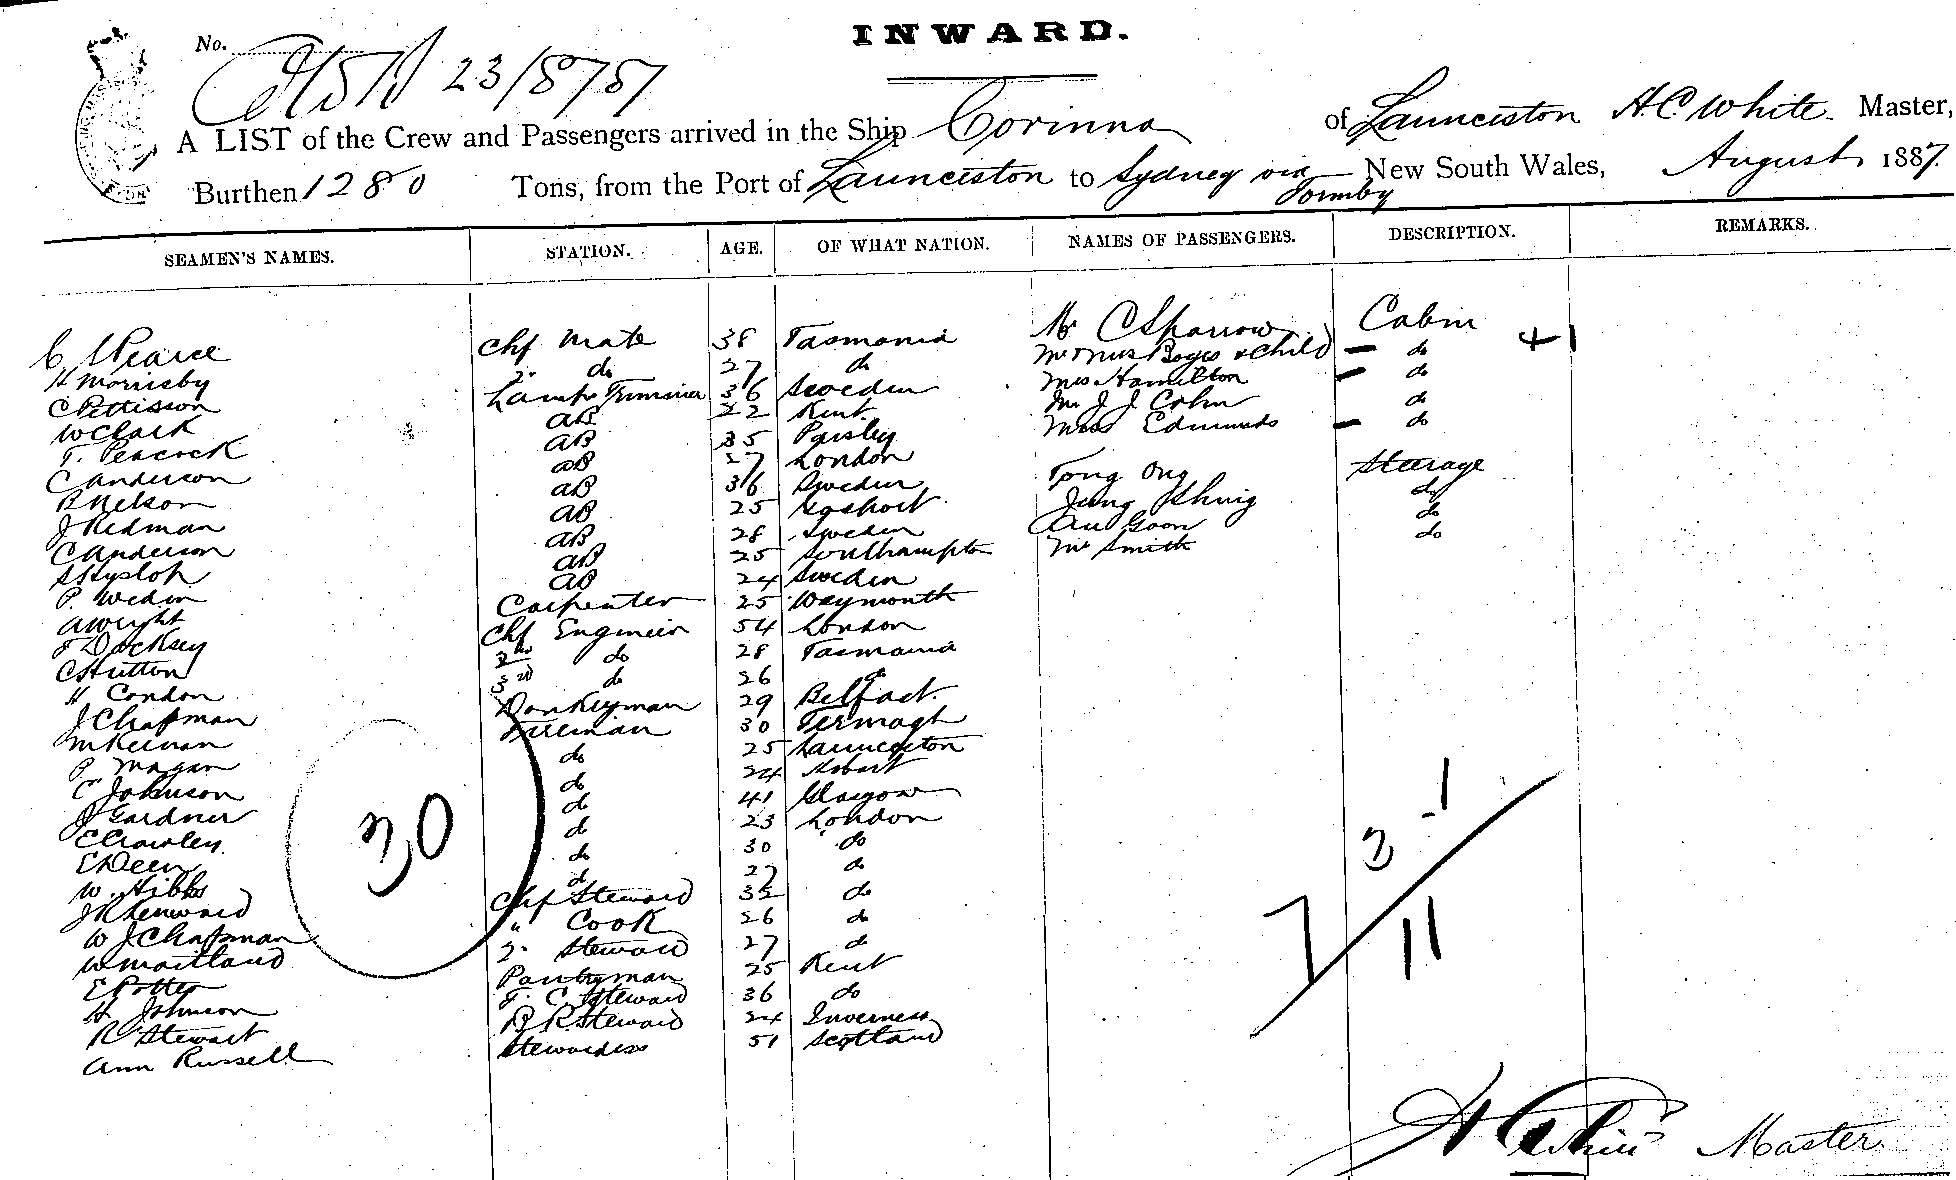 INWARD.
No.
23/8/87
A LIST of the Crew and Passengers arrived in the Ship Corinna of Launceston H. C. White. Master,
Burthen 1280 Tons, from the Port of Launceston to Sydney via Formby New South Wales, August 1887.
SEAMEN'S NAMES. STATION. AGE. OF WHAT NATION. NAMES OF PASSENGERS. DESCRIPTION. REMARKS.
Pearce Chf Mate 38 Tasmania Mr C Sparrow Cabin
H Morrisby 2" do 27 do Mr & Mrs Boyes & Child do
C Pettisson Lamp Trimmer 36 Sweden Mrs Hamilton do
W Clark AB 22 Kent Mr J J Cohn do
T. Peacock AB 35 Paisley Miss Edmunds do
C Anderson AB 27 London Tong Ong Steerage
P Nelson AB 36 Sweden Jung Shing do
J Redman AB 25 Goon do
C Anderson AB 28 Sweden Mr Smith do
S Hyslop AB 25 Southampton
P. Wedin AB 24 Sweden
A Wright Carpenter 25 Weymouth
F Docksey Chf Engineer 54 London
C Hutton 2nd do 28 Tasmania
H Condon 3rd do 26
J Chapman Donkeyman 29 Belfast.
M Keenan Fireman 30 Fermagh
P. Magan do 25 Launceston
C Johnson do 24 Hobart
J Gardner do 41 Glasgow
E Crowley do 23 London
E Deen do 30 do
W. Hibbs do 27 do
J R Kenward Chf Steward 32 do
W J Chapman " Cook 26 do
W Maitland 2" Steward 27 do
E Potter Pantryman 25 Kent
H Johnson F. C. Steward 36 do
R Stewart B. R. Steward 24 Inverness
Ann Russell Stewardess 51 Scotland
30
+1
3 -1
7
11
H C White Master